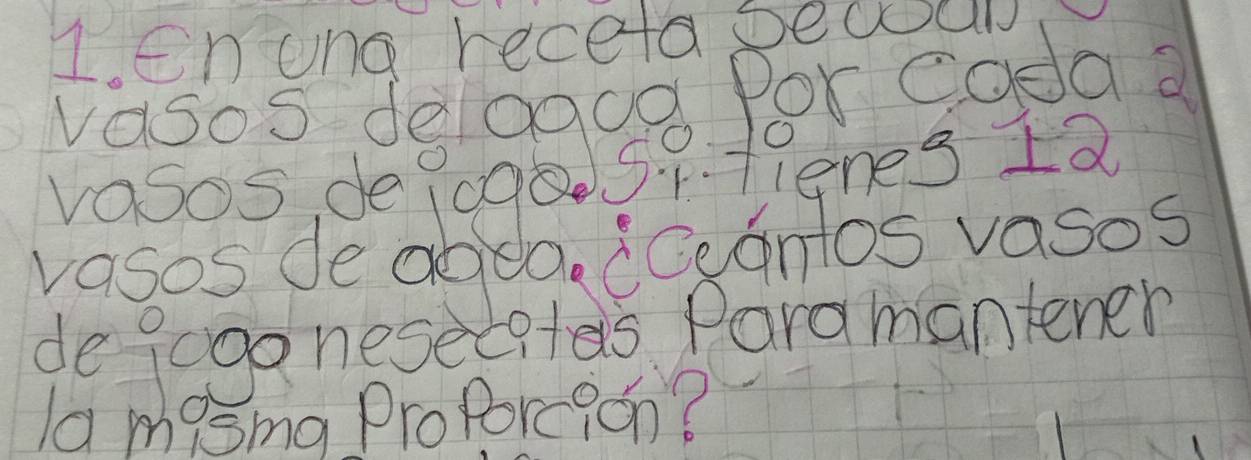 1. En una receta se usan
vasos de agua por cada 2
vasos de jugo. Si tienes 12
vasos de agua. ¿Cuántos vasos
de jugo nesecitas para mantener
la misma proporción?